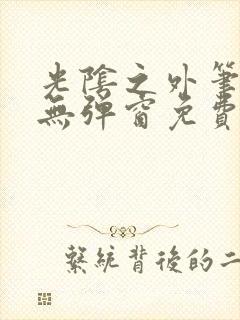 光陰之外筆
無彈窗免費
繫統背後的二